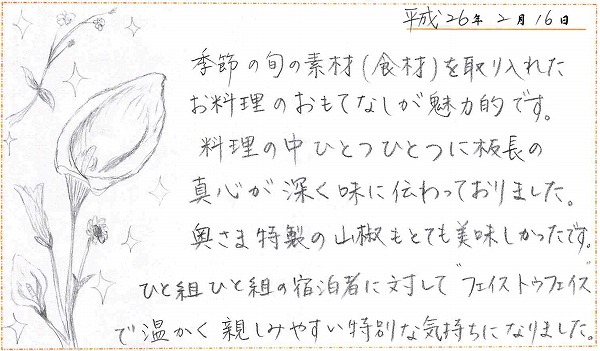 平成26年2月16日
季節の旬の素材(食材)を取り入れた
お料理のおもてなしが魅力的です。
料理の中ひとつひとつに板長の
真心が深く味に伝わっておりました。
奥さま特製の山椒もとても美味しかったです。
ひと組ひと組の宿泊者に対して"フェイストゥフェイス"
で温かく親しみやすい特別な気持ちになりました。